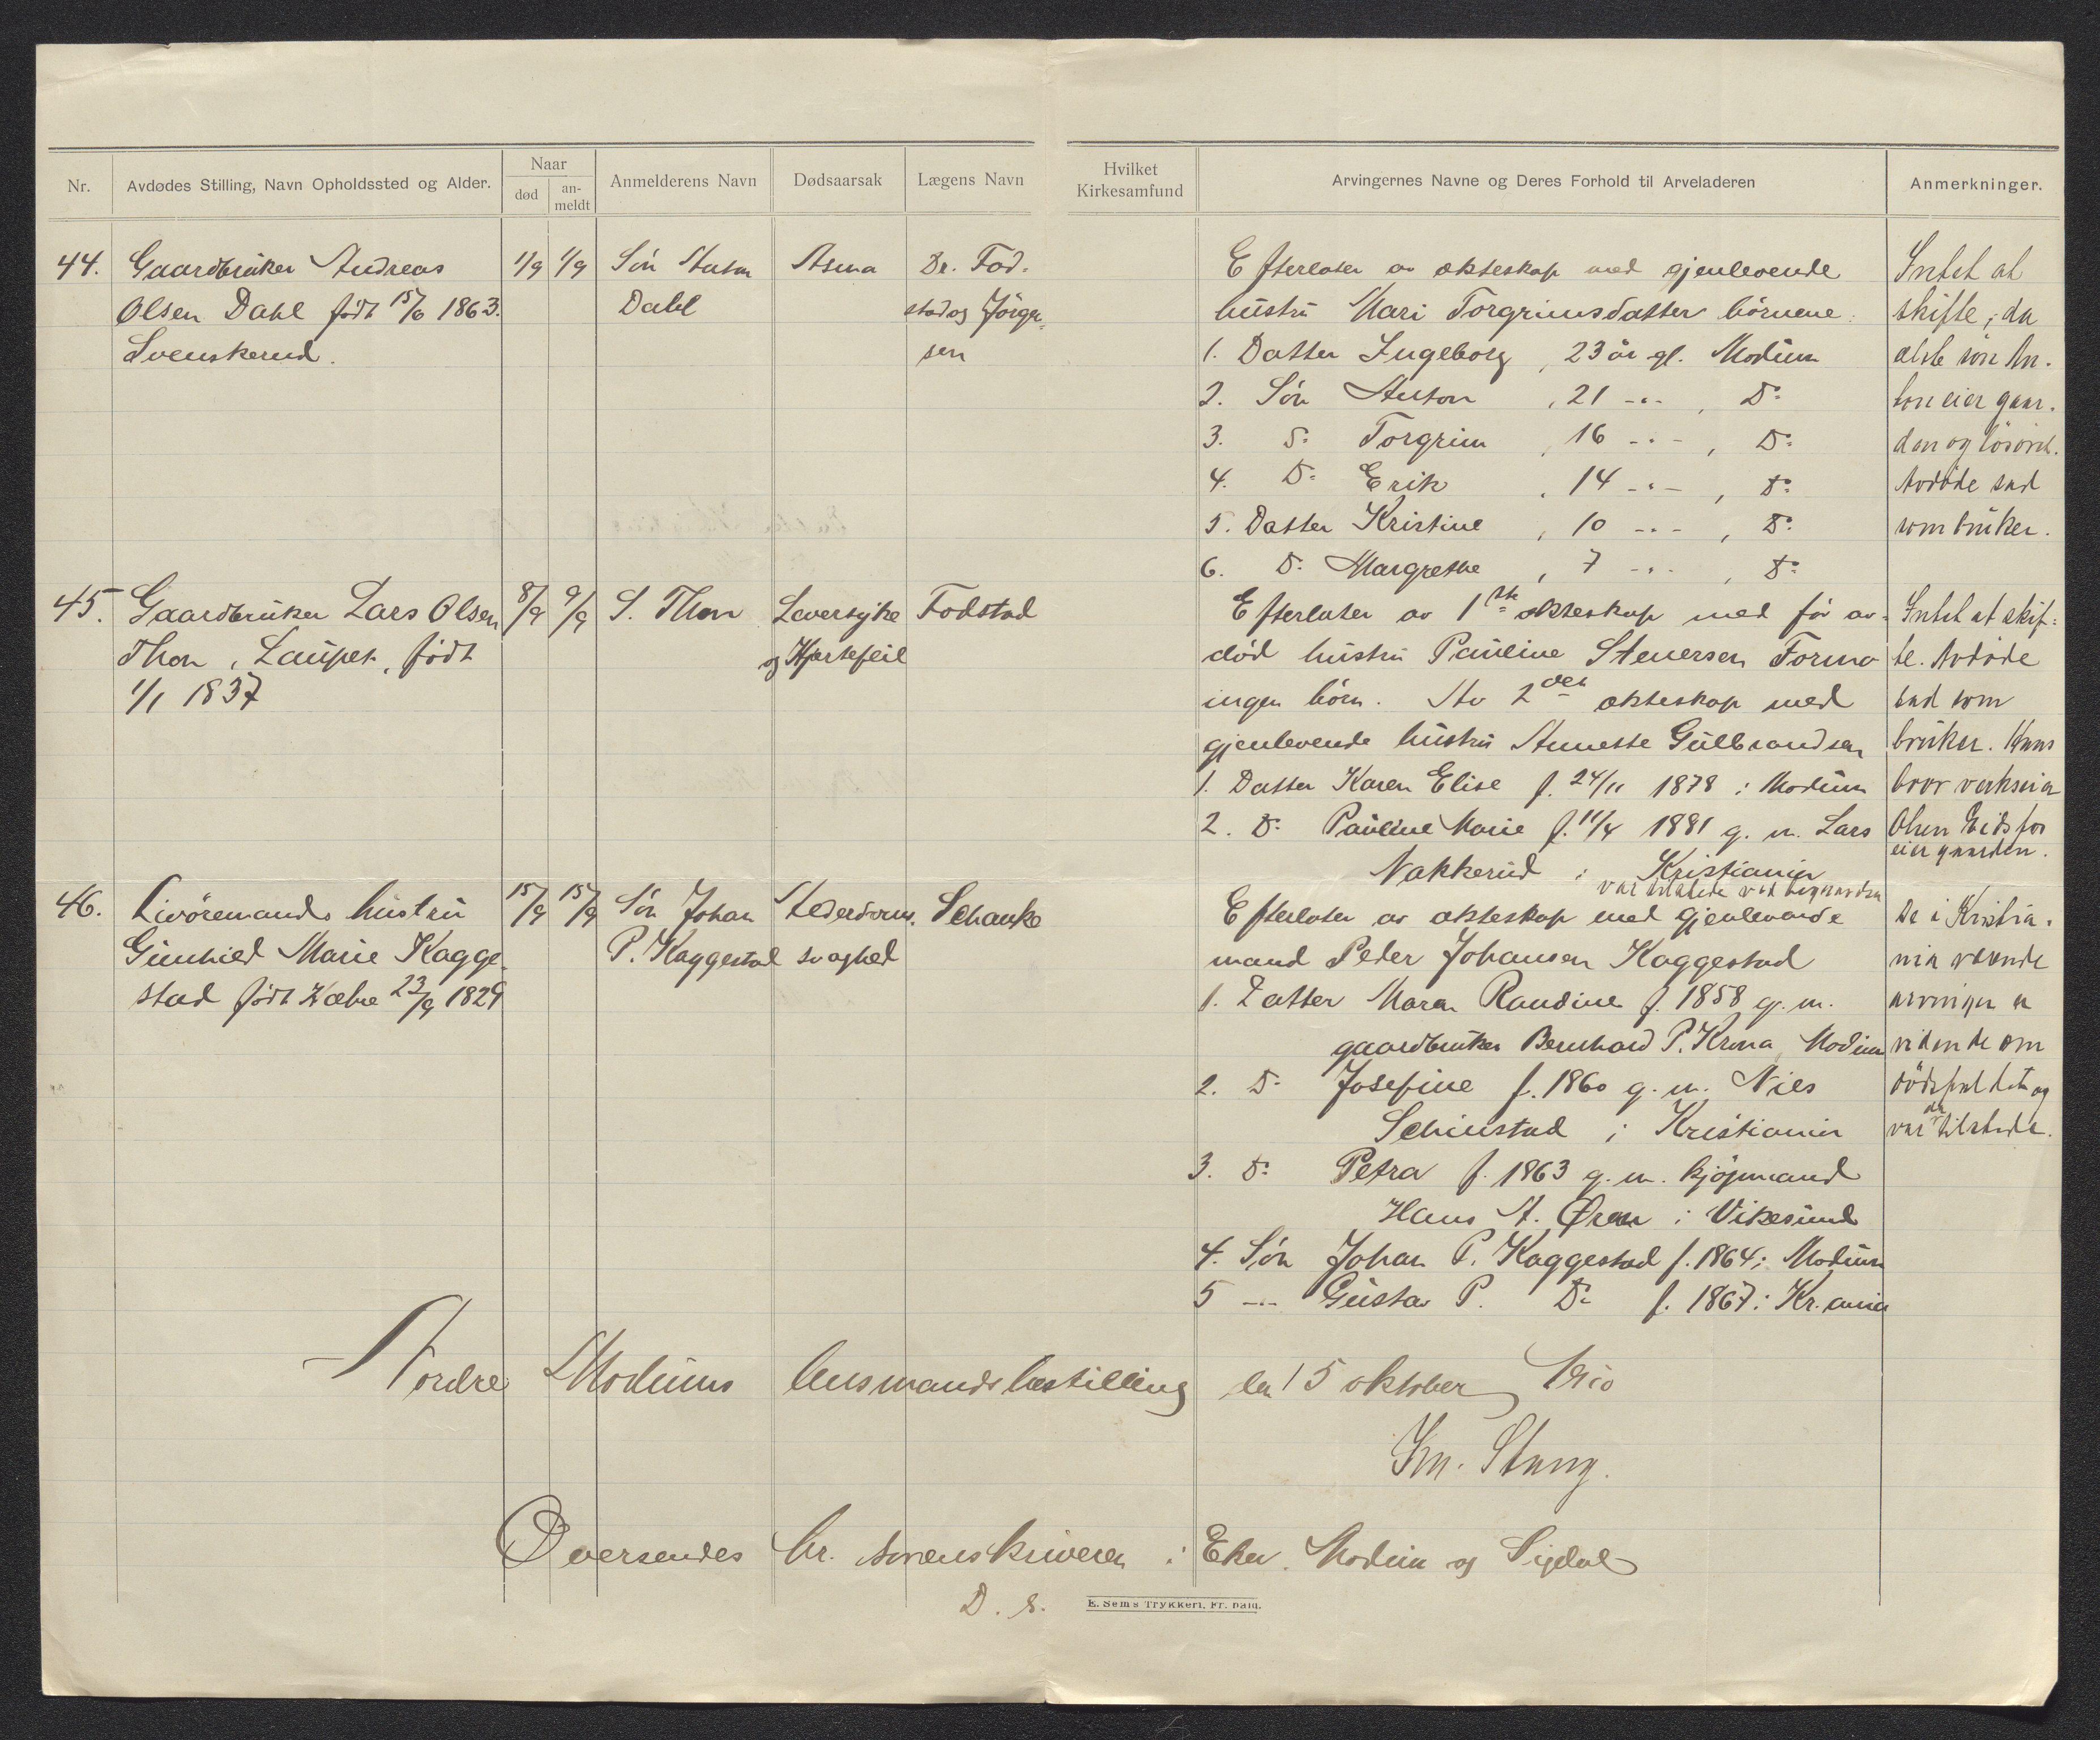 Nr.
Avdødes Stilling, Navn Opholdssted og Alder.
Naar
død
an-
meldt
Anmelderens Navn
Dødsaarsak
Lægens Navn
Hvilket
Kirkesamfund
Arvingernes Navne og Deres Forhold til Arveladeren
Anmerkninger.
44.
Gaardbruker Andreas
Olsen Dahl født 15/6 1863.
Svenskerud.
1/9
1/9
Søn Anton
Dahl
Asma
Dr. Fod-
stad og Jörgen-
sen
Efterlater av ekteskap med gjenlevende
hustru Mari Torgrimsdatter börnene:
1. Datter Ingeborg, 23 år gl. Modum
2. Søn Anton, 21 -"- , Do
3. Do Torgrim, 16 -"- , Do
4. Do Erik, 14 -"- , Do
5. Datter Kristine, 10 -"- , Do
6. Do Margrethe, 7 -"- , Do
Intet at
skifte, da
elste søn An-
ton eier gaar-
den og løsøret.
Avdøde sad
som bruker.
45.
Gaardbruker Lars Olsen
Thon, Laupet, født
1/1 1837
8/9
9/9
S. Thon
Leversyke
og Hjertefeil
Fodstad
Efterlater av 1ste ekteskap med før av-
død hustru Pauline Stenersen Formo
ingen børn. Av 2det ekteskap med
gjenlevende hustru Annette Gulbrandsen
1. Datter Karen Elise f. 24/11 1878 i Modum
2. Do Pauline Marie f. 11/4 1881 g. m. Lars
Nakkerud i Kristiania
Intet at skif-
te. Avdøde
sad som
bruker. Hans
bror verkseier
Olsen Eidsfos
eier gaarden.
46.
Livøremands hustru
Gunhild Marie Kagge-
stad født Kælve 23/9 1829
15/9
15/9
Søn Johan
P. Kaggestad
Alderdoms-
svaghed
Schanke
var tilstede ved begravelsen
Efterlater av ekteskap med gjenlevende
mand Peder Johansen Kaggestad
1. Datter Maren Randine f. 1858 g. m.
gaardbruker Bernhard P. Krona, Modum
2. Do Josefine f. 1860 g. m. Nils
Schiustad i Kristiania
3. Do Petra f. 1863 g. m. kjøpmand
Hans A. Øren i Vikesund
4. Søn Johan P. Kaggestad f. 1864 i Modum
5 -"- Gustav P. Do f. 1867 i Kr.ania
De i Kristia-
nia værende
arvinger er
vidende om
dødsfaldet og
var da tilstede.
Nordre Modums lensmandsbestilling den 15 oktober 1910
Kn. Stang.
Oversendes hr. sorenskriveren i Eker, Modum og Sigdal
D. s.
E. Sem's Trykkeri, Fr. hald.